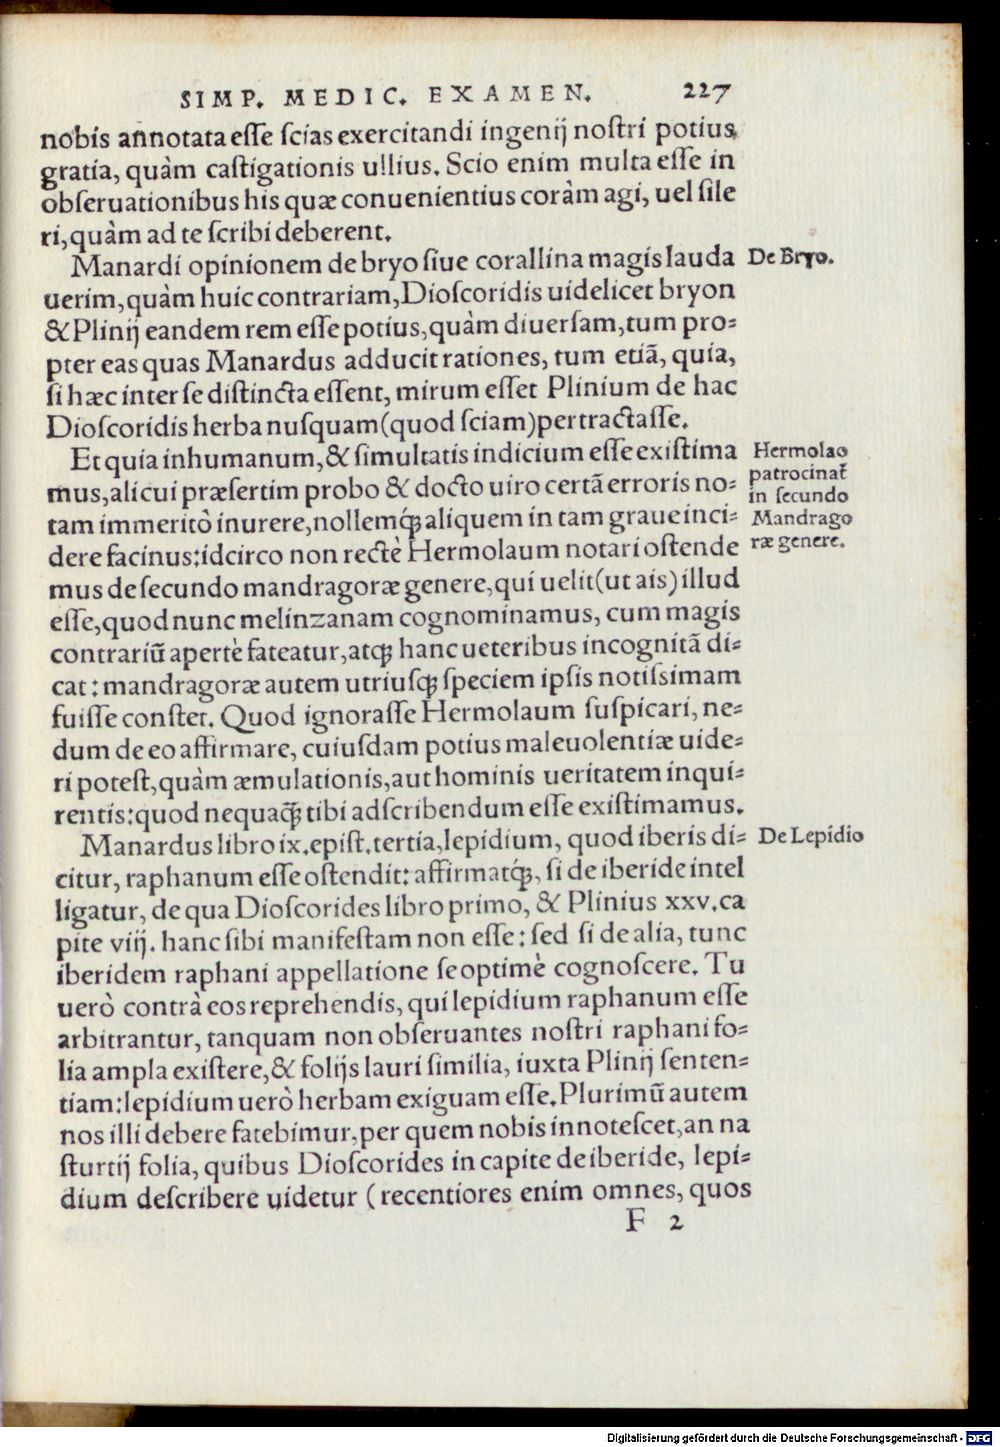 SIMP. MEDIC. EXAMEN. 227
nobis annotata eſſe ſcias exercitandi ingenij noſtri potius
gratia, quàm caſtigationis ullius. Scio enim multa eſſe in
obſeruationibus his quæ conuenientius coràm agi, uel ſile
ri, quàm ad te ſcribi deberent.
Manardi opinionem de bryo ſiue corallina magis lauda
uerim, quàm huic contrariam, Dioſcoridis uidelicet bryon
& Plinij eandem rem eſſe potius, quàm diuerſam, tum pro⸗
pter eas quas Manardus adducit rationes, tum etiã, quia,
ſi hæc inter ſe diſtincta eſſent, mirum eſſet Plinium de hac
Dioſcoridis herba nuſquam (quod ſciam) pertractaſſe.
De Bryo.
Et quia inhumanum, & ſimultatis indicium eſſe exiſtima
mus, alicui præſertim probo & docto uiro certã erroris no⸗
tam immeritò inurere, nollemq́; aliquem in tam graue inci⸗
dere facinus: idcirco non rectè Hermolaum notari oſtende
mus de ſecundo mandragoræ genere, qui uelit (ut ais) illud
eſſe, quod nunc melinzanam cognominamus, cum magis
contrariũ apertè fateatur, atq; hanc ueteribus incognitã di⸗
cat: mandragoræ autem utriuſq; ſpeciem ipſis notiſsimam
fuiſſe conſtet. Quod ignoraſſe Hermolaum ſuſpicari, ne⸗
dum de eo affirmare, cuiuſdam potius maleuolentiæ uide⸗
ri poteſt, quàm æmulationis, aut hominis ueritatem inqui⸗
rentis: quod nequaq̃; tibi adſcribendum eſſe exiſtimamus.
Hermolao
patrocinat̃
in ſecundo
Mandrago
ræ genere.
Manardus libro ix. epiſt. tertia, lepidium, quod iberis di⸗
citur, raphanum eſſe oſtendit: affirmatq́;, ſi de iberide intel
ligatur, de qua Dioſcorides libro primo, & Plinius xxv. ca
pite viij. hanc ſibi manifeſtam non eſſe: ſed ſi de alia, tunc
iberidem raphani appellatione ſe optimè cognoſcere. Tu
uerò contrà eos reprehendis, qui lepidium raphanum eſſe
arbitrantur, tanquam non obſeruantes noſtri raphani fo⸗
lia ampla exiſtere, & folijs lauri ſimilia, iuxta Plinij ſenten⸗
tiam: lepidium uerò herbam exiguam eſſe. Plurimũ autem
nos illi debere fatebimur, per quem nobis innoteſcet, an na
ſturtij folia, quibus Dioſcorides in capite de iberide, lepi⸗
dium deſcribere uidetur (recentiores enim omnes, quos
De Lepidio
F 2
Digitalisierung gefördert durch die Deutsche Forschungsgemeinschaft - DFG